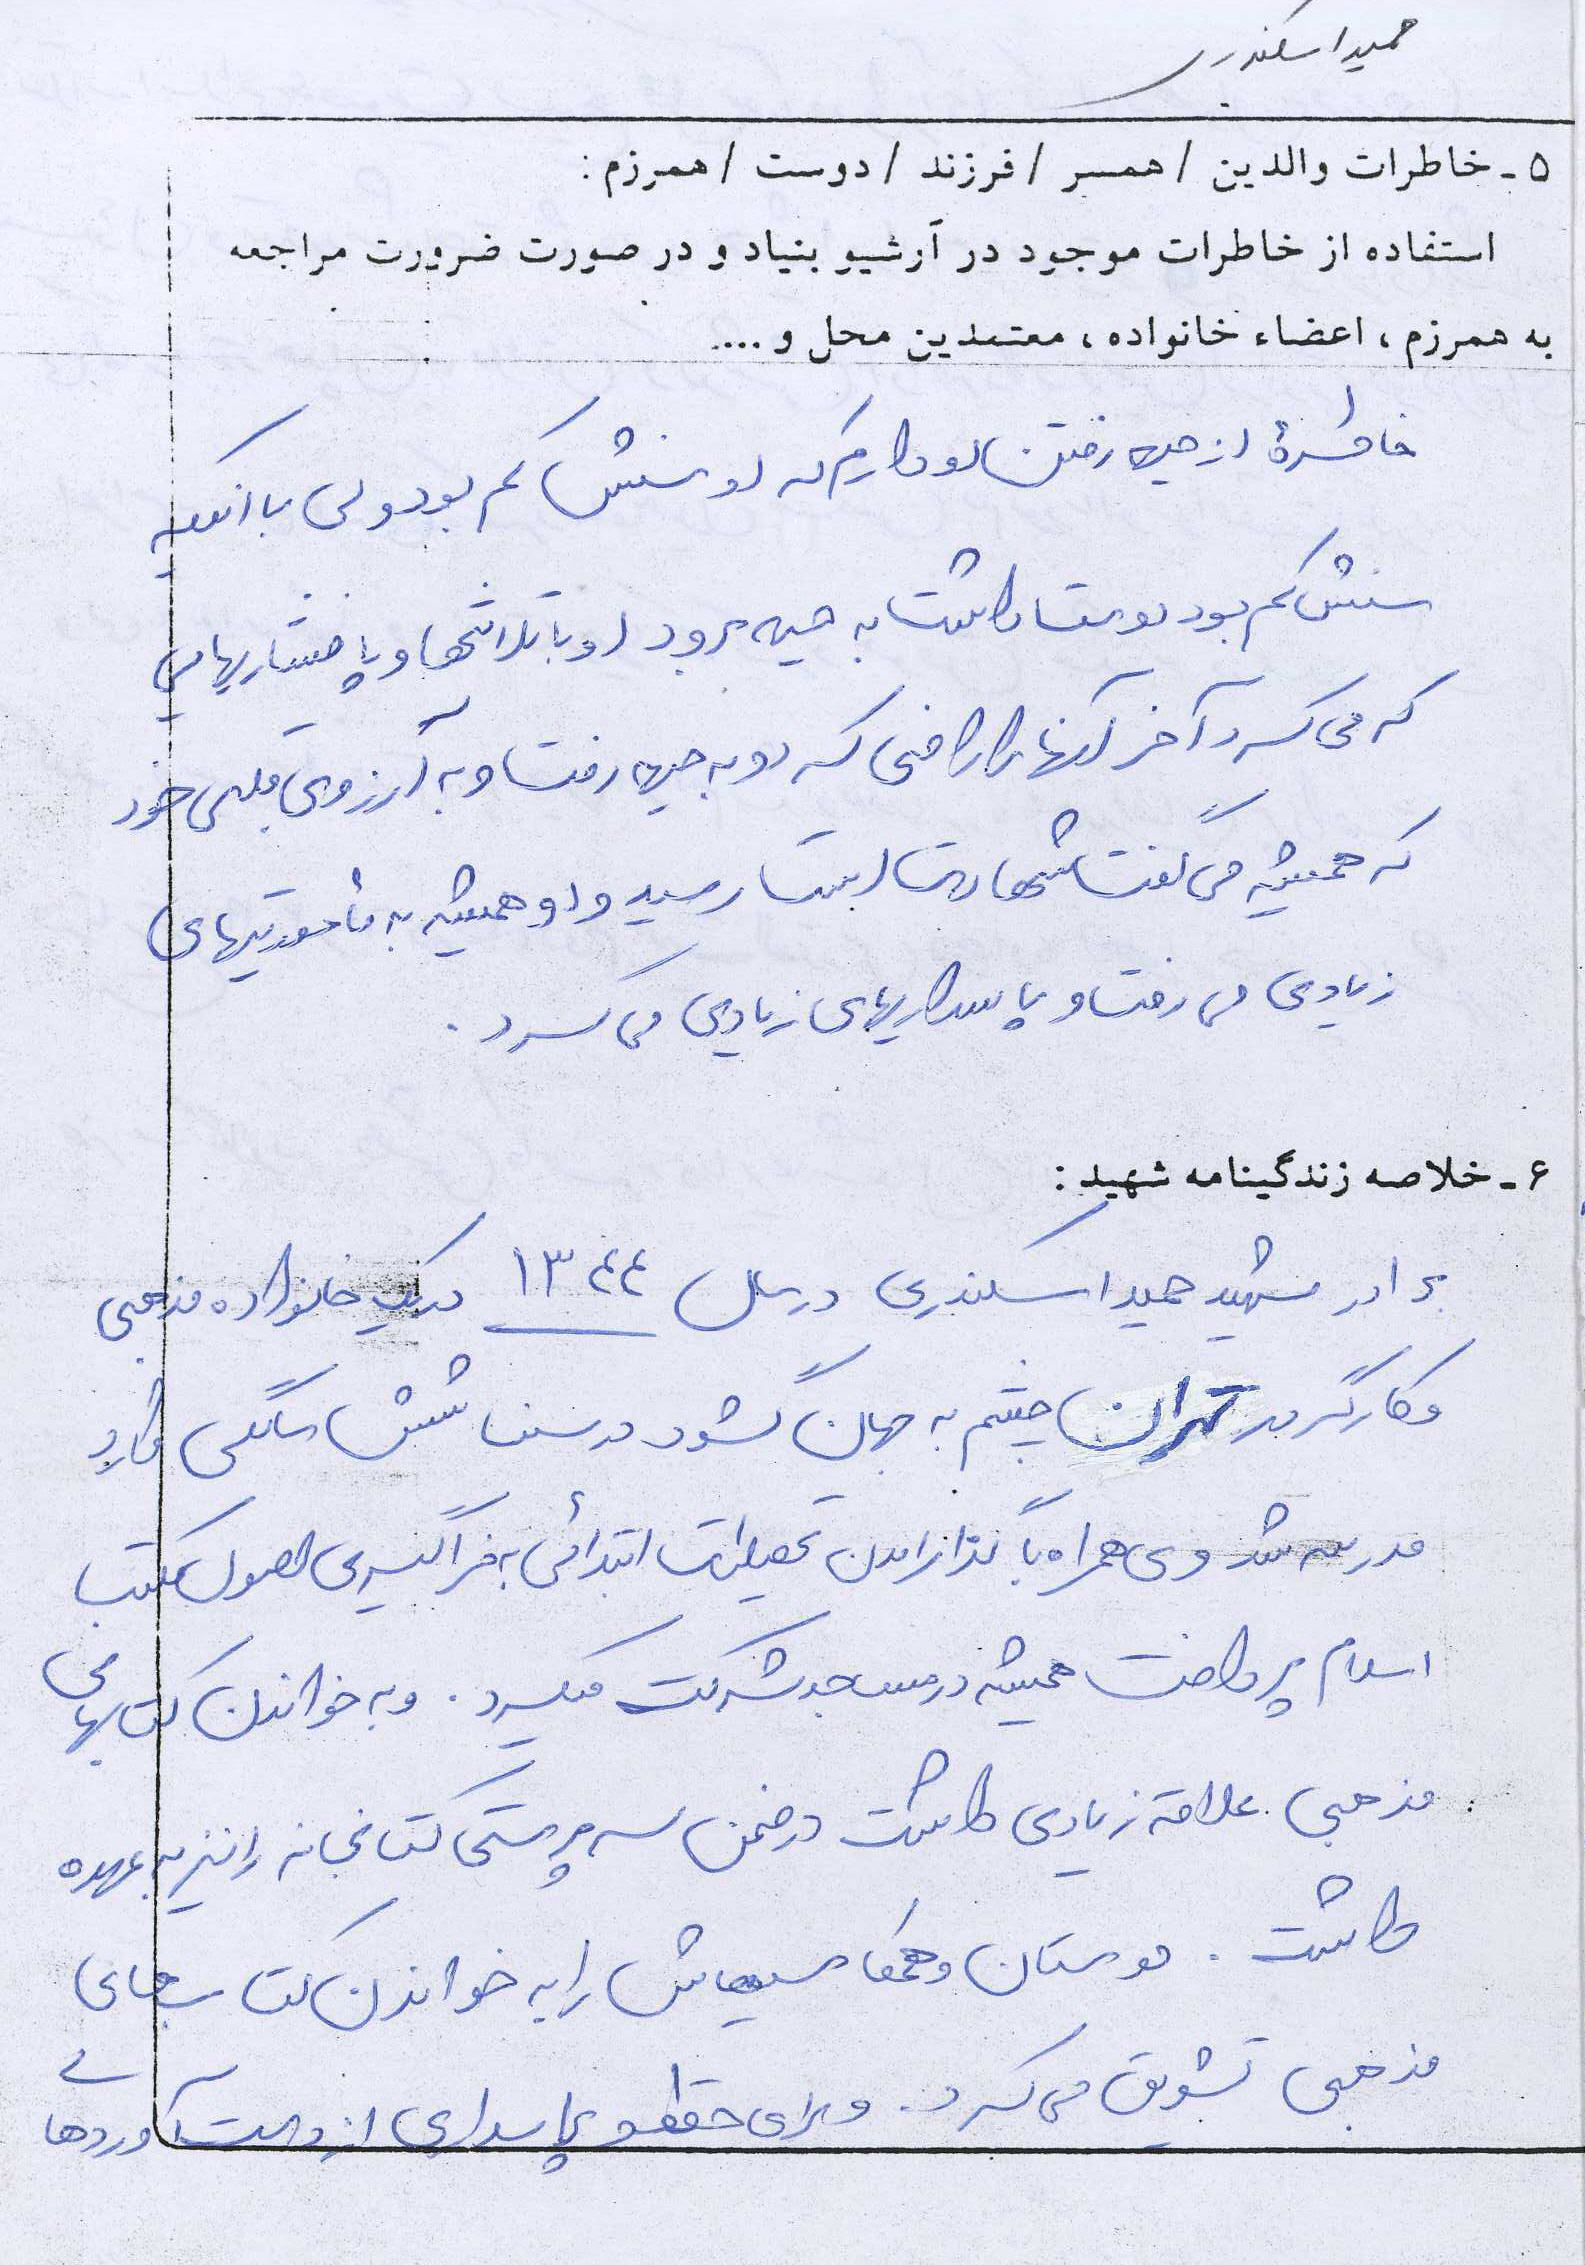 حمید اسکندری
۵ ـ خاطرات والدین / همسر / فرزند / دوست / همرزم :
استفاده از خاطرات موجود در آرشیو بنیاد و در صورت ضرورت مراجعه
به همرزم ، اعضاء خانواده ، معتمدین محل و ....
خاطرهٔ از جبهه رفتن او دارم که او سنش کم بود ولی با انکه
سنش کم بود دوست داشت به جبهه برود او با تلاشها و پافشاریهایی
که می کرد آخر آنها را راضی کرد و به جبهه رفت و به آرزوی قلبی خود
که همیشه می گفت شهادت است رسید و او همیشه به مأموریتهای
زیادی می رفت و پاسداریهای زیادی می کرد .
۶ ـ خلاصه زندگینامه شهید :
برادر شهید حمید اسکندری در سال ۱۳۴۴ در یک خانواده مذهبی
و کارگر در تهران چشم به جهان گشود در سن شش سالگی وارد
مدرسه شد وی همراه با گذراندن تحصیلات ابتدائی به فراگیری اصول مکتب
اسلام پرداخت همیشه در مساجد شرکت میکرد . و به خواندن کتابهای
مذهبی علاقه زیادی داشت در ضمن سرپرستی کتابخانه را نیز به عهده
داشت . دوستان و همکلاسیهایش را به خواندن کتاب های
مذهبی تشویق می کرد . و برای حفظ و پاسداری از دست آوردهای